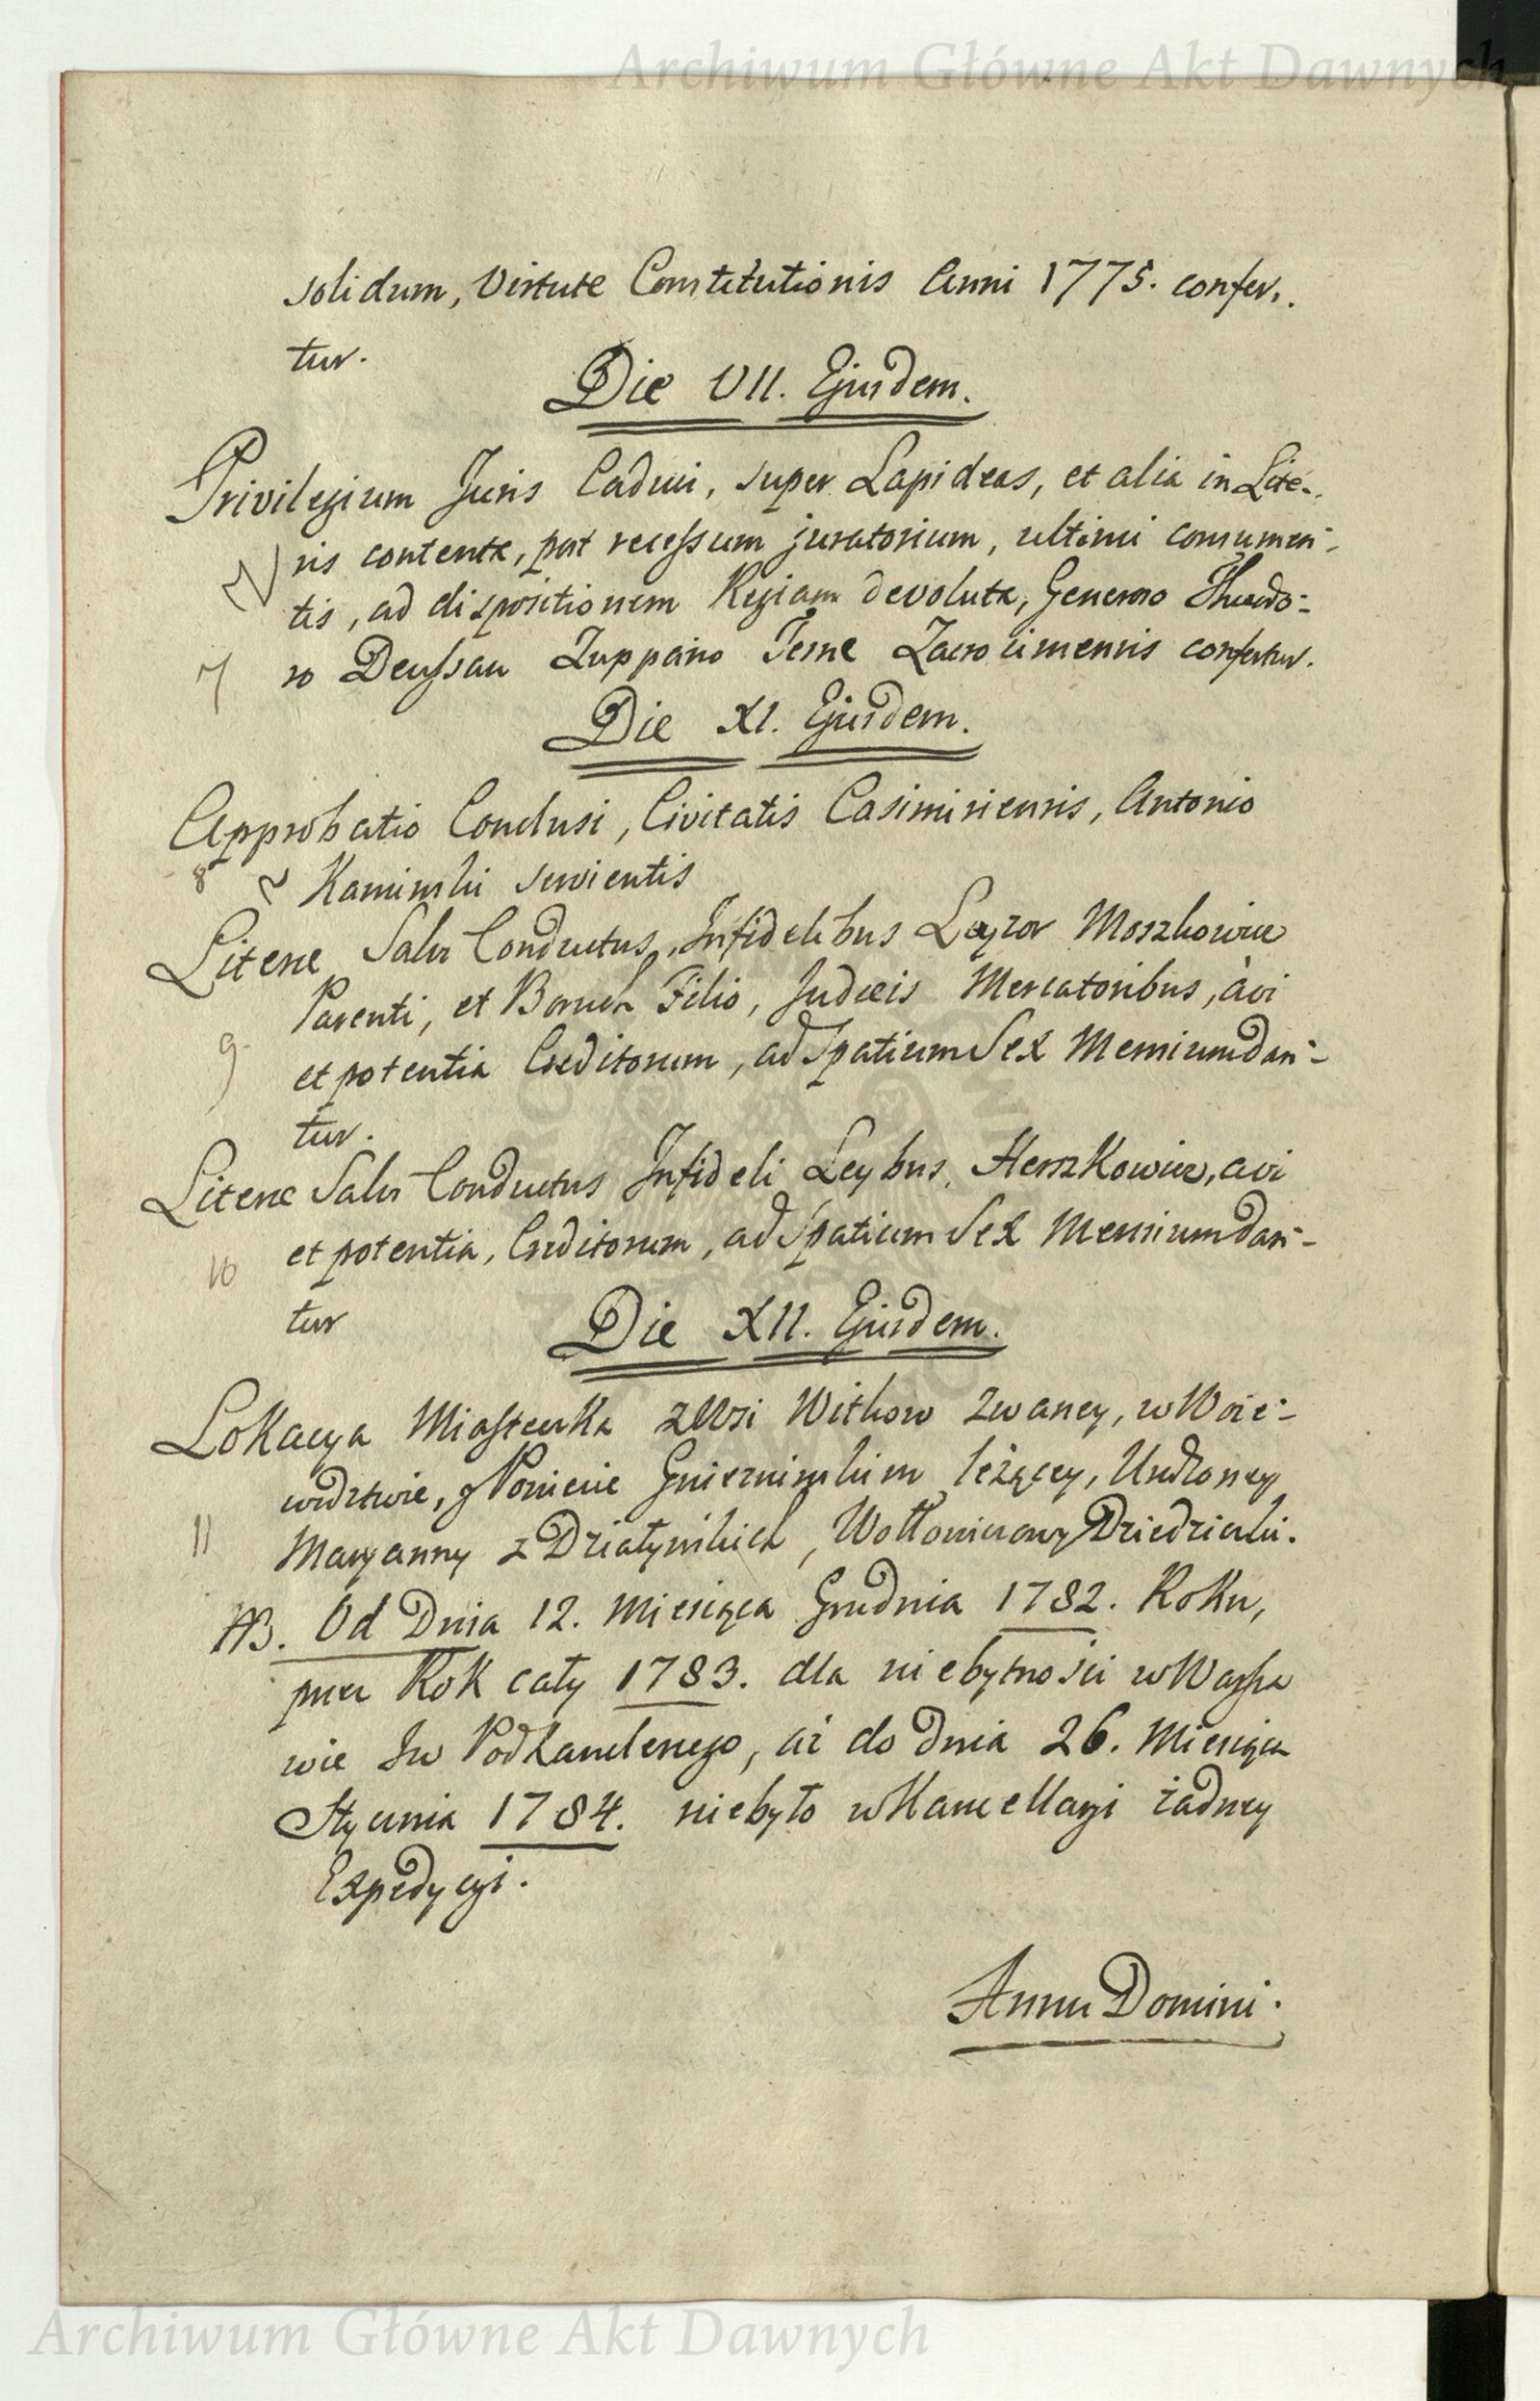 Archiwum Główne Akt Dawnych
solidum, Virtute Constitutionis Anni 1775. confer..
tur.
Die VII. Ejusdem.
Privilegium Juris Caduci, super Lapideas, et alia in Lite..
ris contenta, post recessum juratorium, ultimi consumen-
tis, ad dispositionem Regiam devoluta, Generoso
7 ro Zuppano confertur.
Die XI. Ejusdem.
Approbatio Conclusi, Civitatis Casimiriensis, Antonio
8 Kaminski servientis
Literae Salvi Conductus, Infidelibus Leyzor Moszkowicz
Parenti, et Boruch Filio, Judaeis Mercatoribus, à vi
9. et potentia Creditorum, ad Spatium Sex Mensium dan-
tur.
Literae Salvi Conductus Infideli Leybus, Herszkowicz, a vi
10 et potentia, Creditorum, ad Spatium Sex Mensium dan-
tur
Die XII. Ejusdem.
Lokacya Miasteczka z Wsi Witkow zwaney, w Woie-
wdztwie, y Powiecie Gniezninskim leżącey, Urodzoney
11 Maryanny z Działyńskich, Dziedziczki.
NB. Od Dnia 12. Miesiąca Grudnia 1782. Roku,
przez Rok cały 1783. dla niebytności w Warsza
wie Jw Podkanclerzego, aż do Dnia 26. Miesiąca
Stycznia 1784. niebyło w Kancellaryi żadney
Expedycyi.
Annu Domini.
Archiwum Główne Akt Dawnych